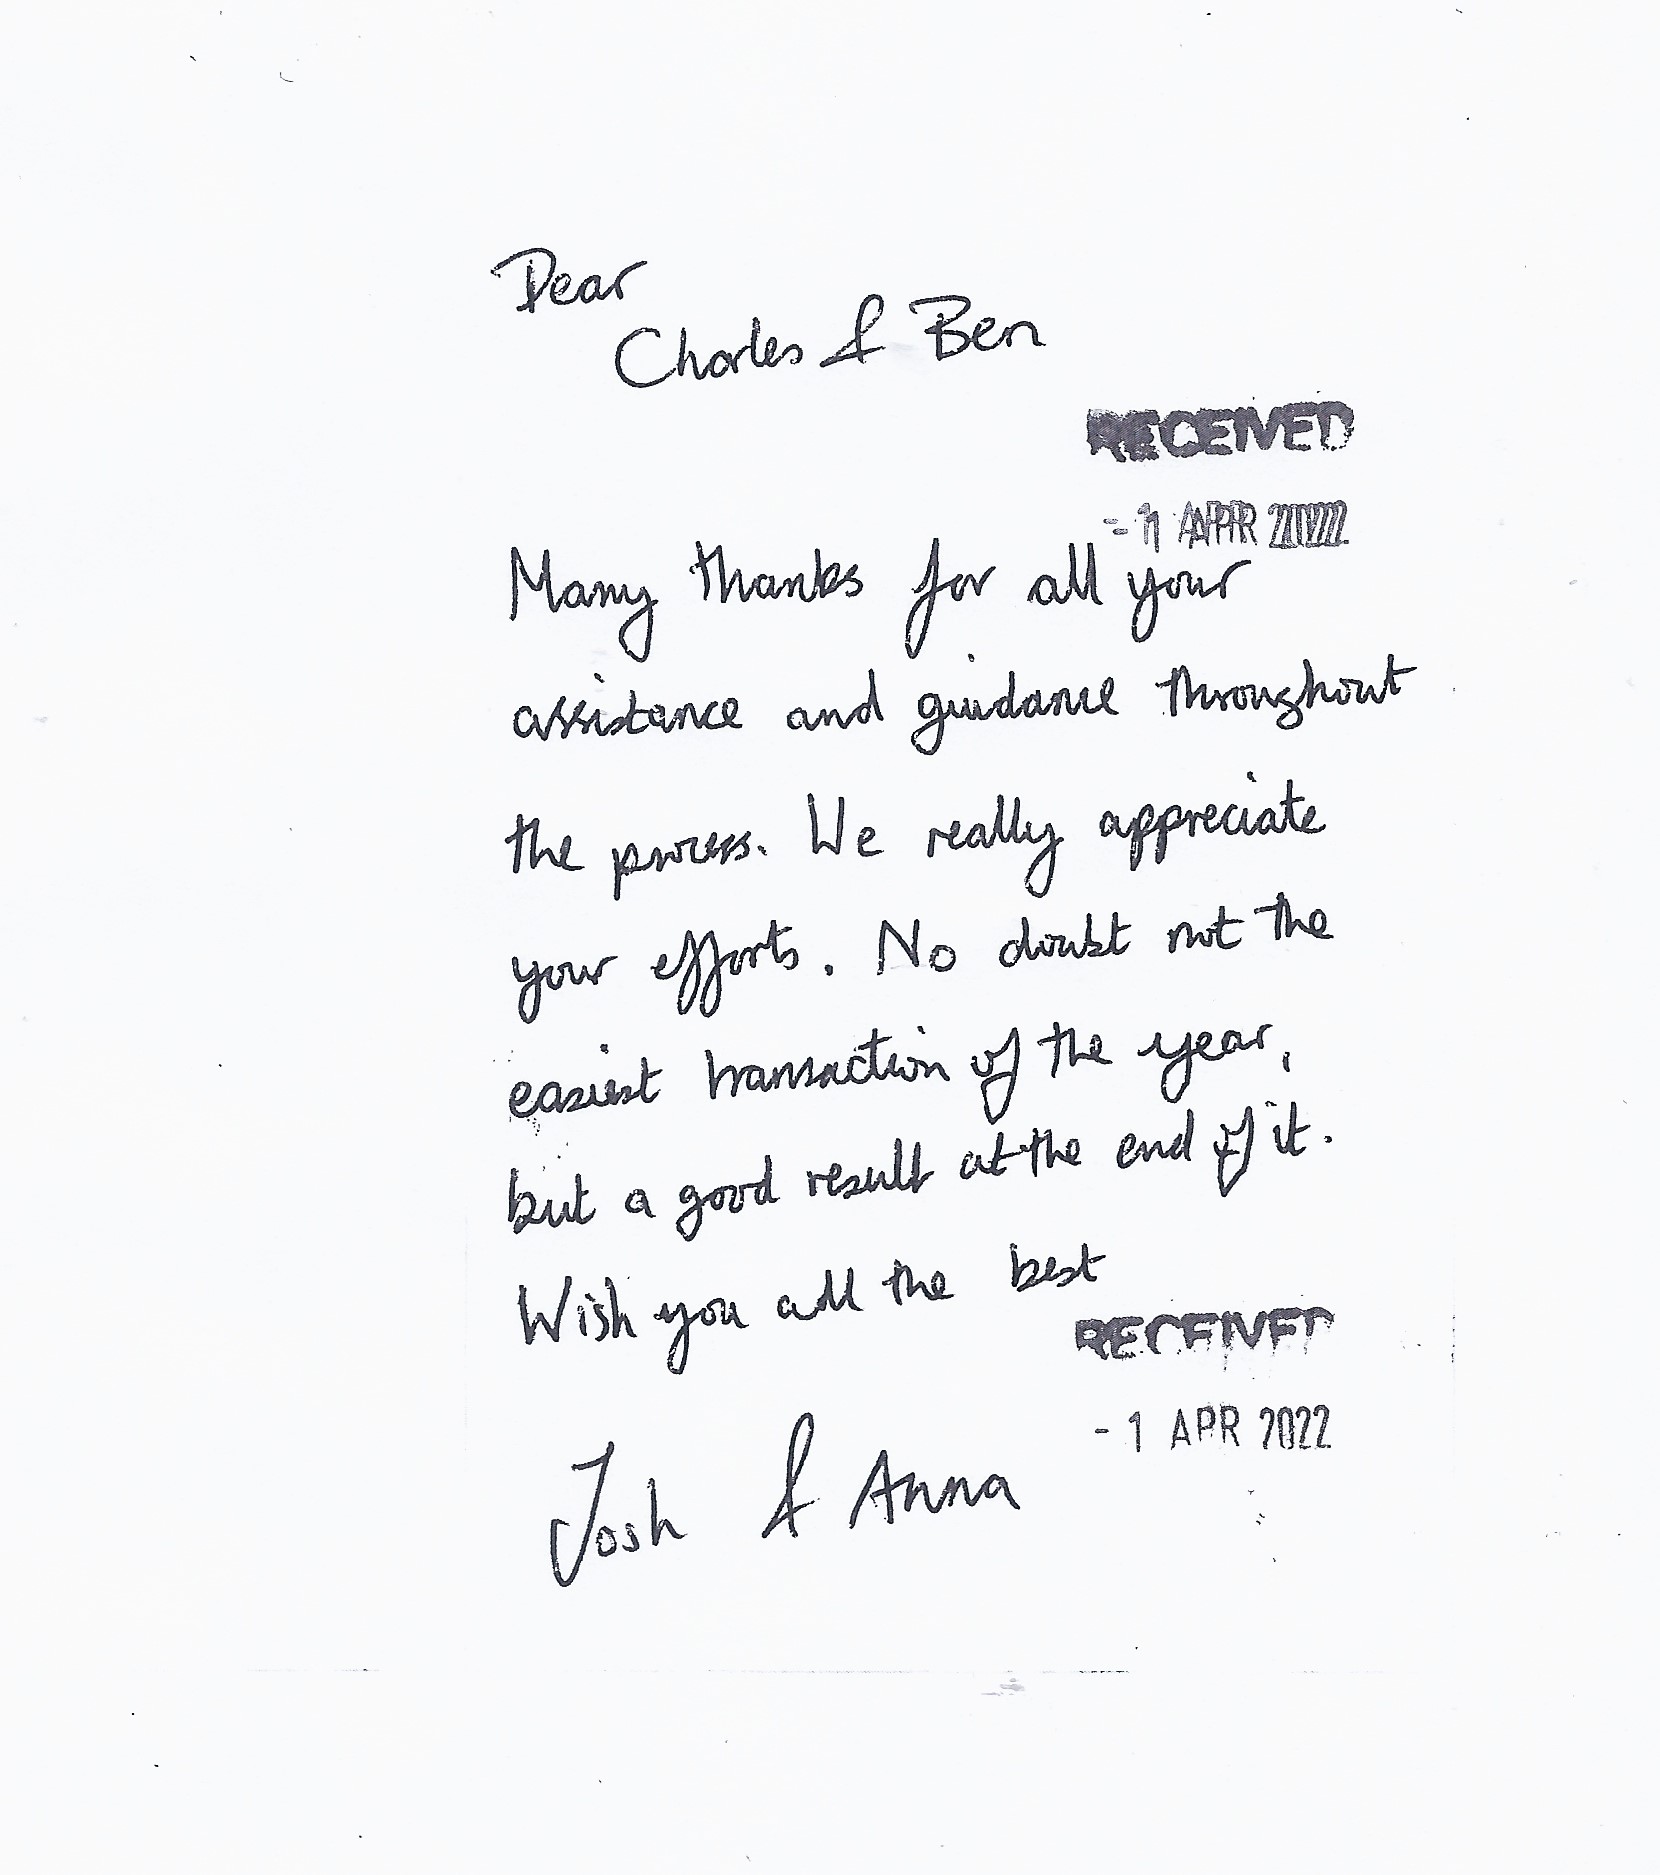 Dear
Charles & Ben
RECEIVED
- 1 APR 2022
Many thanks for all your
assistance and guidance throughout
the process. We really appreciate
your efforts. No doubt not the
easiest transaction of the year,
but a good result at the end of it.
Wish you all the best
RECEIVED
- 1 APR 2022
Josh & Anna